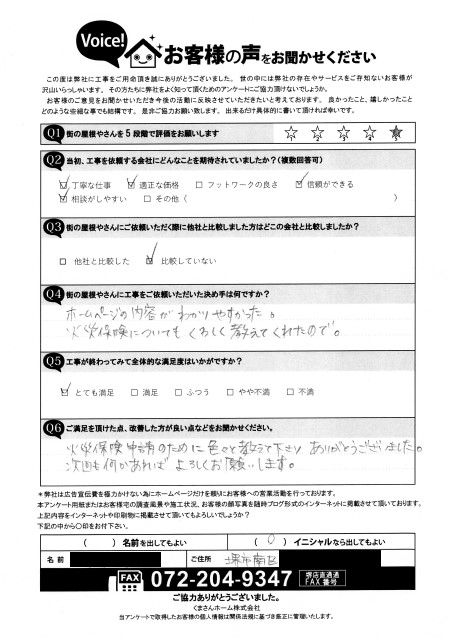 Voice! お客様の声をお聞かせください
この度は弊社に工事をご用命頂き誠にありがとうございました。世の中には弊社の存在やサービスをご存知ないお客様が
沢山いらっしゃいます。その方たちに弊社をよく知って頂くためのアンケートにご協力頂けないでしょうか。
お客様のご意見をお聞かせいただき今後の活動に反映させていただきたいと考えております。良かったこと、嬉しかったこと
どのような些細な事でも結構です。是非ご協力お願い致します。出来るだけ具体的に書いて頂ければ幸いです。
Q1 街の屋根やさんを5段階で評価をお願いします ☆1 ☆2 ☆3 ☆4 ★5
Q2 当初、工事を依頼する会社にどんなことを期待されていましたか?(複数回答可)
☑ 丁寧な仕事 ☑ 適正な価格 □ フットワークの良さ ☑ 信頼ができる
☑ 相談がしやすい □ その他( )
Q3 街の屋根やさんにご依頼いただく際に他社と比較しました方はどこの会社と比較しましたか?
□ 他社と比較した ☑ 比較していない
Q4 街の屋根やさんに工事をご依頼いただいた決め手は何ですか?
ホームページの内容がわかりやすかった。
火災保険についてもくわしく教えてくれたので。
Q5 工事が終わってみて全体的な満足度はいかがですか?
☑ とても満足 □ 満足 □ ふつう □ やや不満 □ 不満
Q6 ご満足を頂けた点、改善した方が良い点などをお聞かせください。
火災保険申請のために色々と教えて下さいありがとうございました。
次回も何かあればよろしくお願いします。
＊弊社は広告宣伝費を極力かけない為にホームページだけを頼りにお客様への営業活動を行っております。
本アンケート用紙またはお客様宅の調査風景や施工状況、お客様の顔写真を随時ブログ形式のインターネットに掲載させて頂いております。
上記内容をインターネットや印刷物に掲載させて頂いてもよろしいでしょうか?
下記の中から〇印をお付下さい。
( ) 名前を出してもよい ( 〇 ) イニシャルなら出してもよい
名前 ご住所 堺市南区
FAX 072-204-9347 堺店直通 FAX番号
ご協力ありがとうございました。
くまさんホーム株式会社
当アンケートで取得したお客様の個人情報は関係法規に基づき厳正に管理いたします。